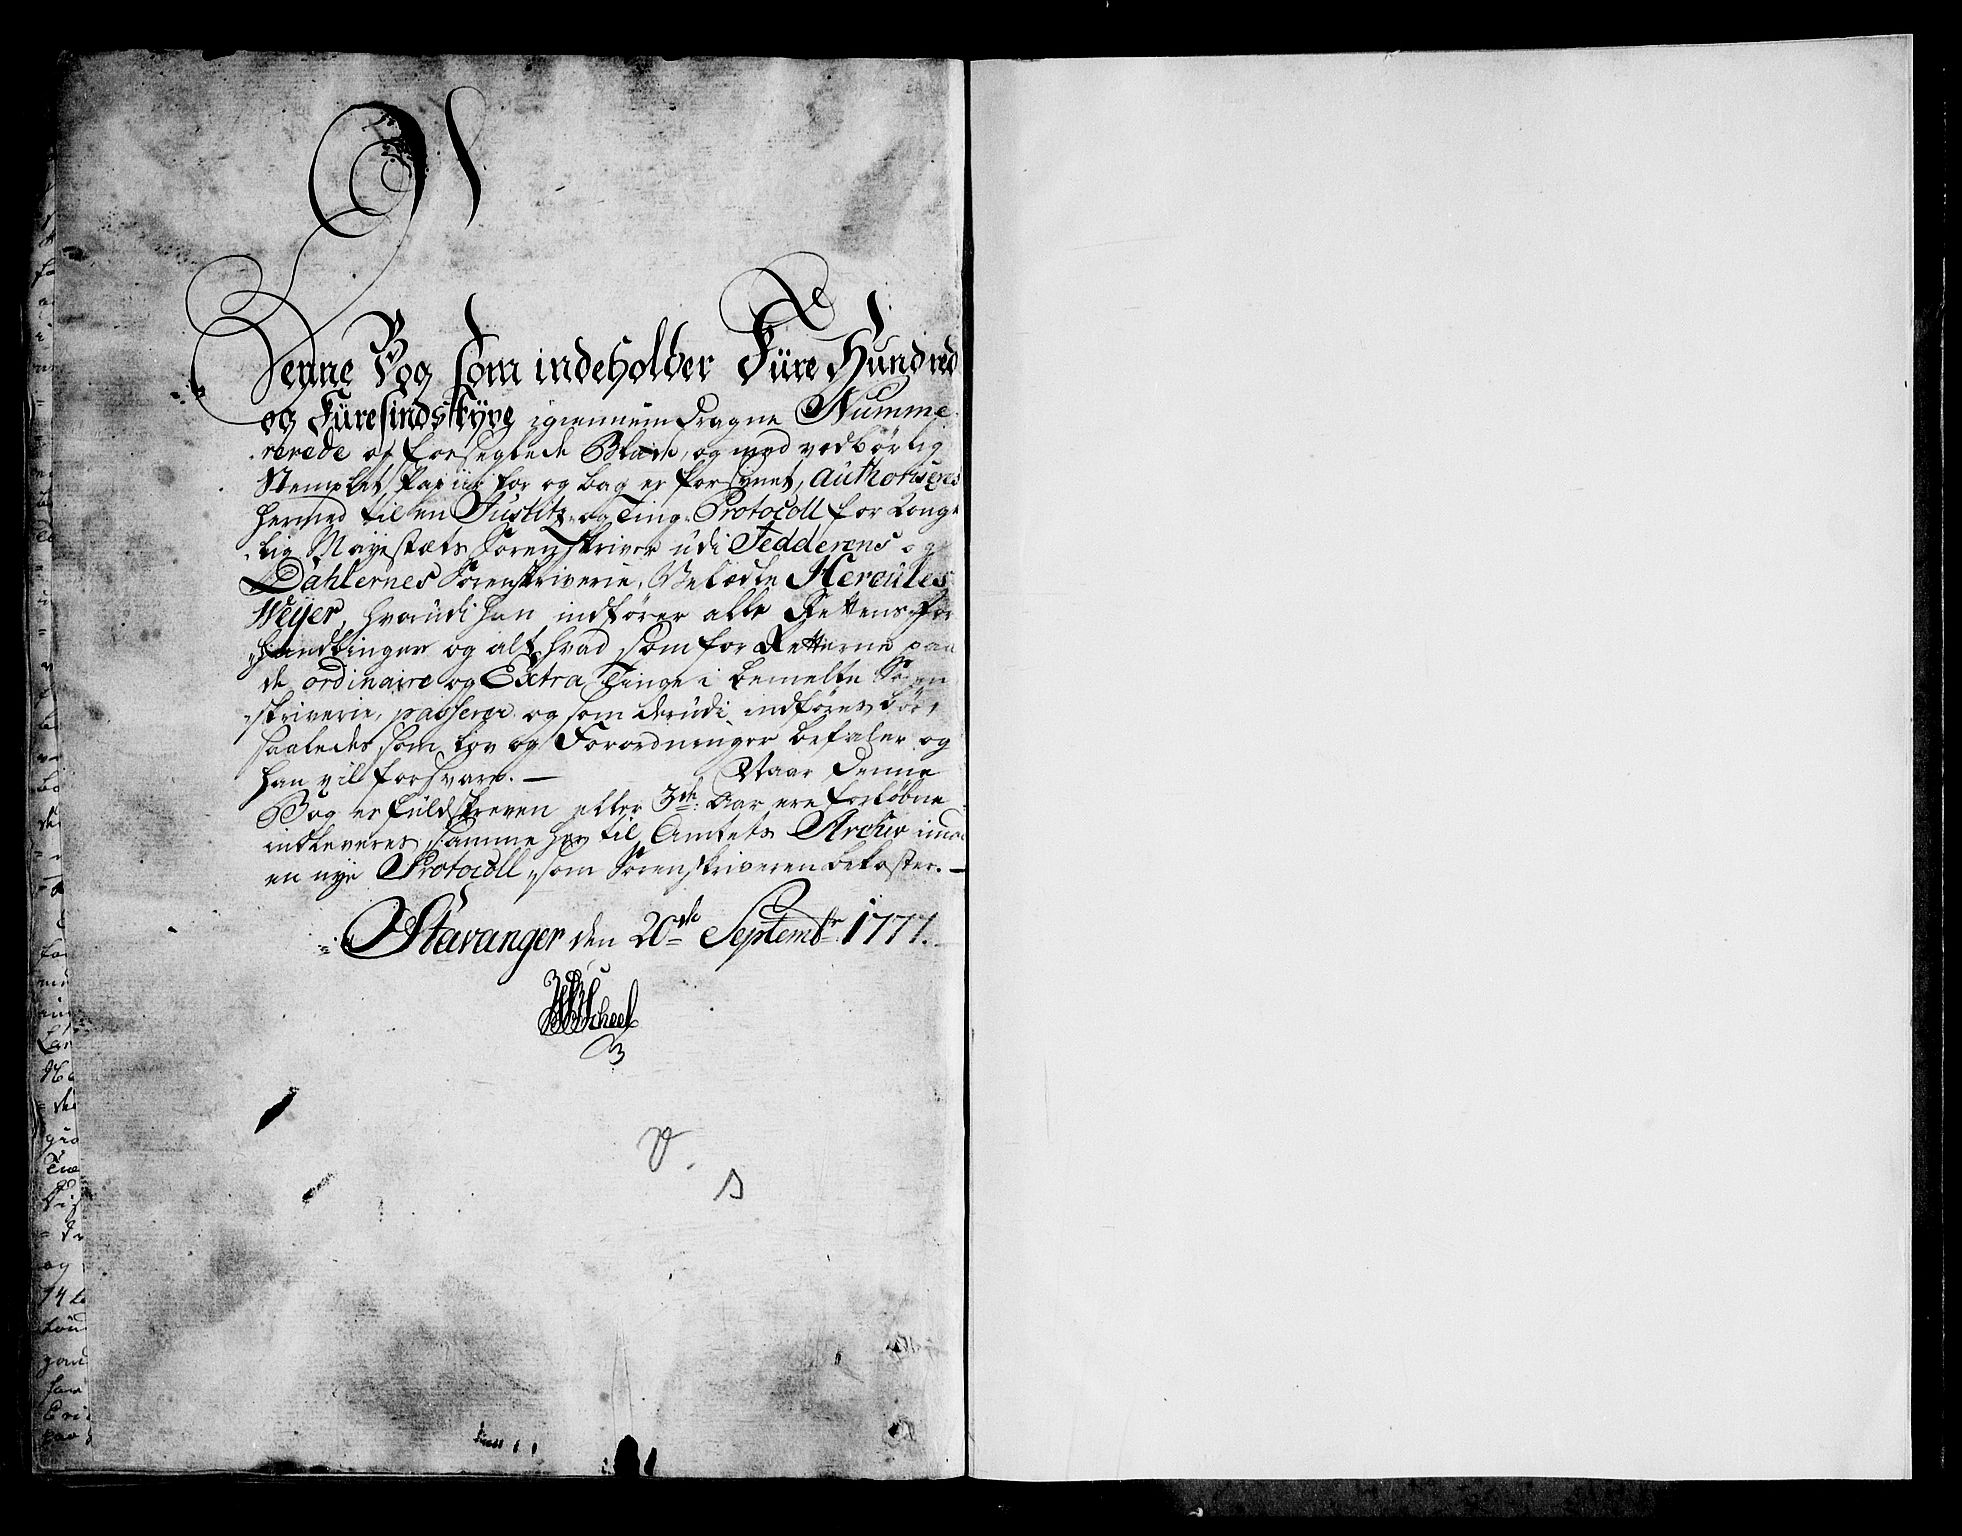 Denne Bog som indeholder Füre Hundred
og Füresindstyve igiennemdragne Numme-
rerede og forseglede Blade, og med vedbørlig
Stemplet Papiir for og bag er forsynet, authoriseres
hermed til en Justitz- og Ting-Protocoll for Konge-
lig Mayestæts Sorenskriver udi Jedderens og
Dahlernes Sorenskriverie, Velædle Hercules
Weÿer, hvorüdi han indfører alle Rettens For-
handlinger og alt hvad som for Retterne paa
de ordinaire og Extra Tinge i bemelte Soren-
skriverie, passerer og som derüdi indføres bør,
saaledes som Lov og Forordninger befaler og
han vil forsvare. — Naar denne
Bog er füldskreven eller 3de Aar ere forløbne
indleveres samme her til Amtets Archiv imod
en nye Protocoll, som Sorenskriveren bekoster. —
Stavanger den 20de Septembr 1777.
Scheel